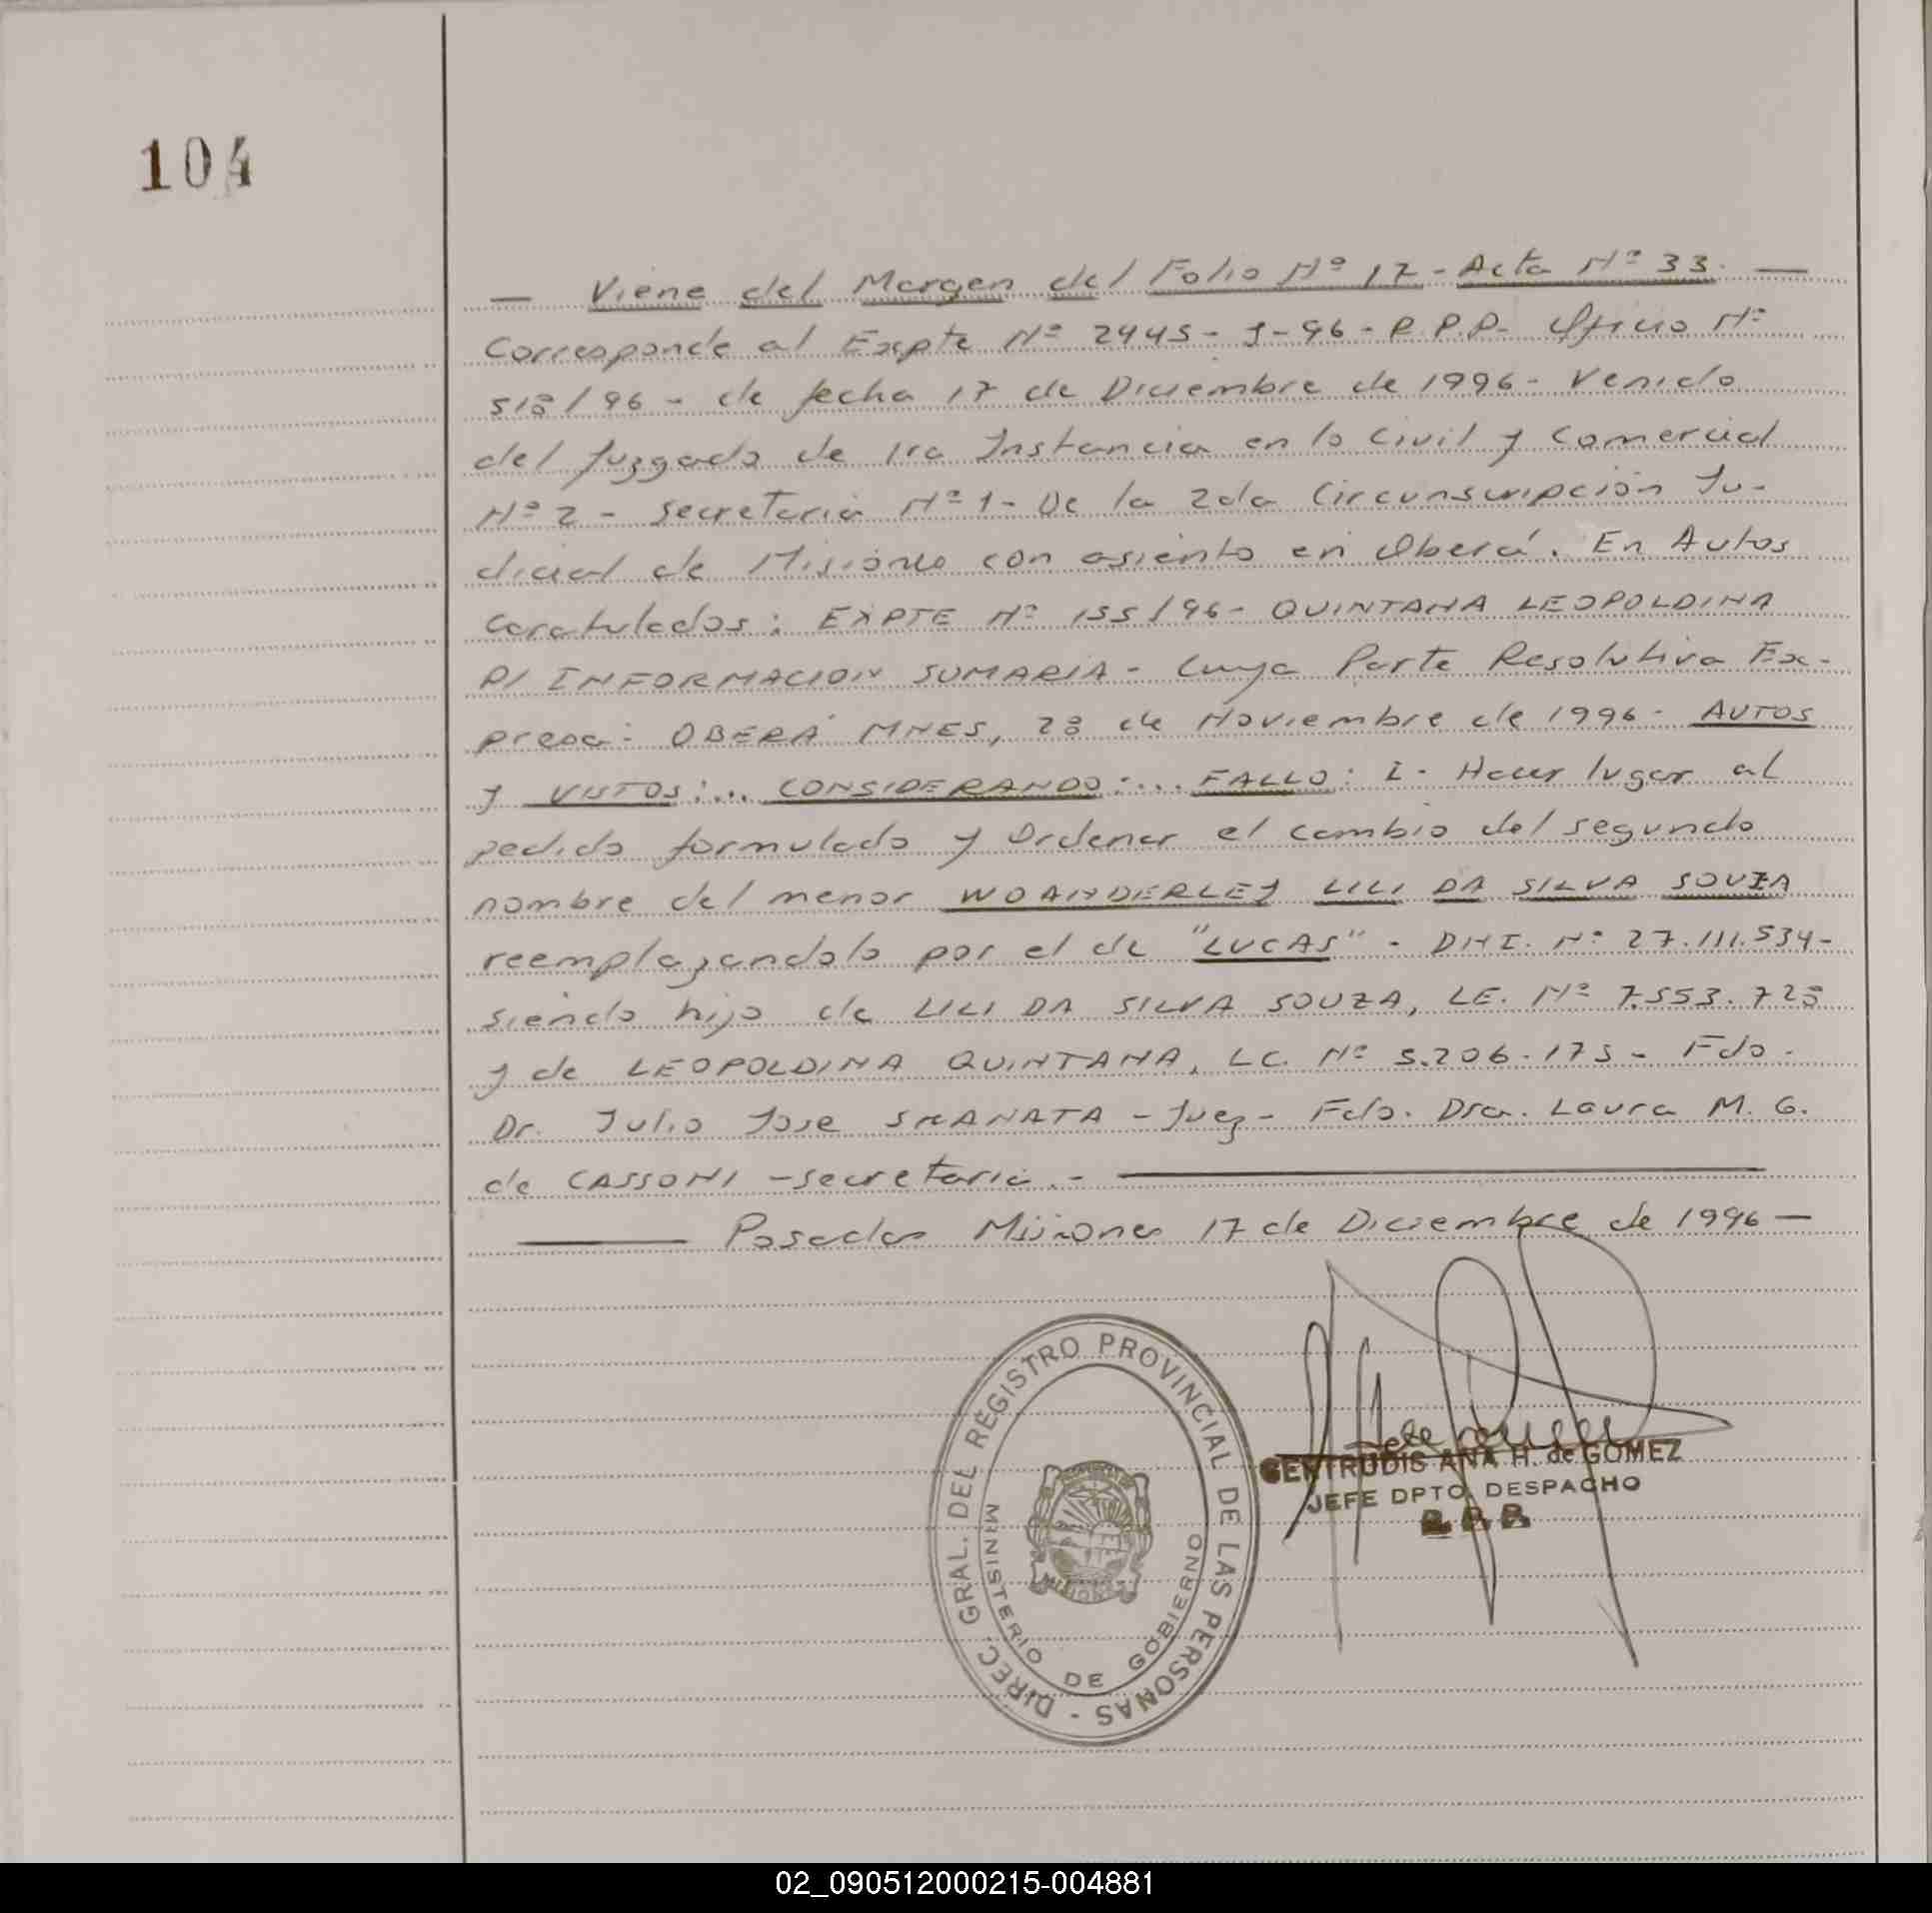 104
— Viene del Margen del Folio Nº 17 - Acta Nº 33. —
Corresponde al Expte Nº 2445 - J - 96 - R.P.P. Oficio Nº
518/96 - de fecha 17 de Diciembre de 1996 - Venido
del Juzgado de 1ra Instancia en lo Civil y Comercial
Nº 2 - Secretaria Nº 1 - De la 2da Circunscripción Ju-
dicial de Misiones con asiento en Oberá. En Autos
Caratulados: EXPTE Nº 155/96 - QUINTANA LEOPOLDINA
P/ INFORMACION SUMARIA - Cuya Parte Resolutiva Ex-
presa: OBERÁ MNES, 28 de Noviembre de 1996 - AUTOS
y VISTOS:... CONSIDERANDO:... FALLO: I - Hacer lugar al
pedido formulado y Ordenar el cambio del segundo
nombre del menor WOANDERLEY LILI DA SILVA SOUZA
reemplazandolo por el de "LUCAS" - DNI. Nº 27.111.534 -
siendo hijo de LILI DA SILVA SOUZA, LE. Nº 7.553.728
y de LEOPOLDINA QUINTANA, LC. Nº 5.206.175 - Fdo.
Dr. Julio Jose - Juez - Fdo. Dra. Laura M. G.
de CASSONI - Secretaria. -
Posadas Misiones 17 de Diciembre de 1996 —
DIREC. GRAL. DEL REGISTRO PROVINCIAL DE LAS PERSONAS -
MINISTERIO DE GOBIERNO
MISIONES
GERTRUDIS ANA H. de GOMEZ
JEFE DPTO. DESPACHO
R. P. P.
02_090512000215-004881